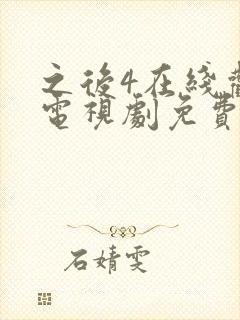 之後4在綫
電視劇免費
石婧雯